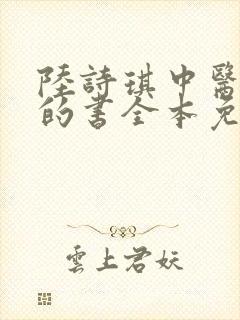 陸詩琪中醫
的書全本免
雲上君妖